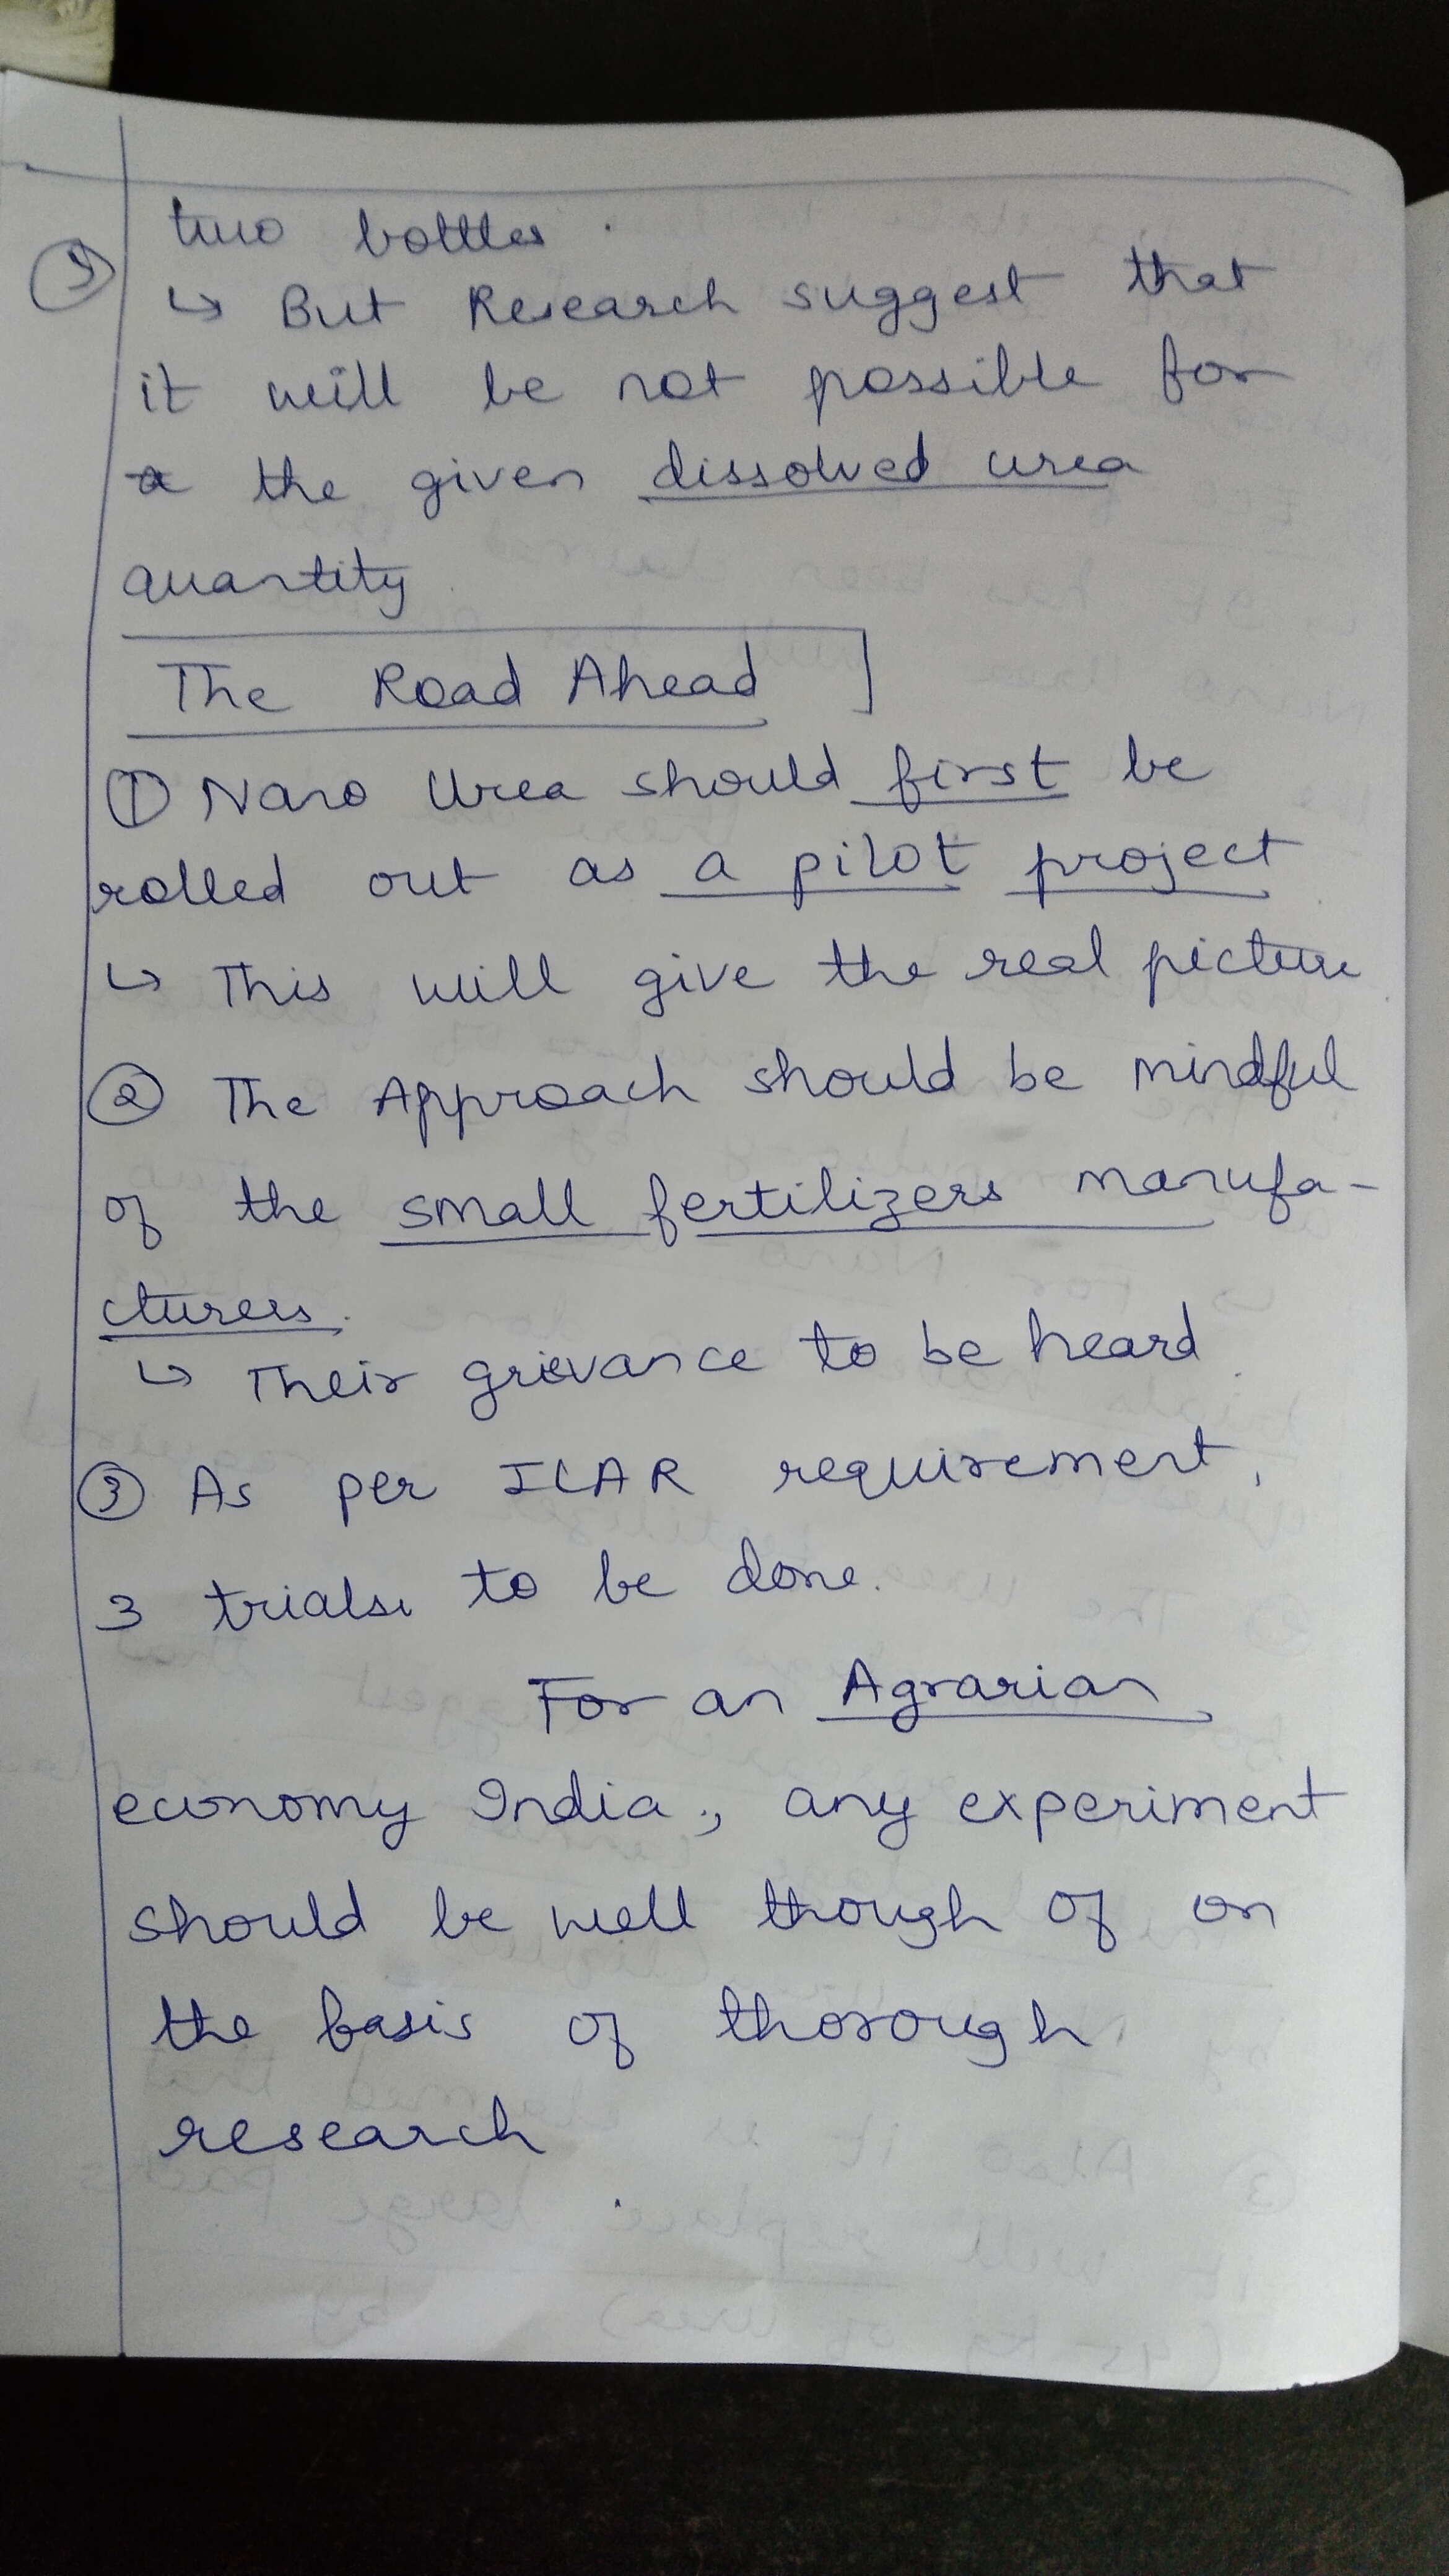 two bottles.
↳ But Research suggest that
it will be not possible for
the given dissolved urea
quantity
The Road Ahead
① Nano Urea should first be
rolled out as a pilot project
↳ This will give the real picture
② The Approach should be mindful
of the small fertilizers manufa-
cturers.
↳ Their grievance to be heard
③ As per ICAR requirement,
3 trials to be done.
For an Agrarian
economy India, any experiment
should be well though of on
the basis of thorough
research